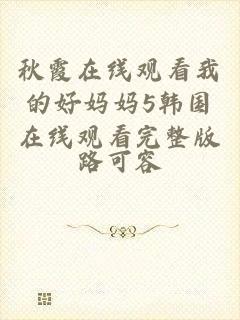 秋霞在线观看我
的好妈妈5韩国
在线观看完整版
路可容